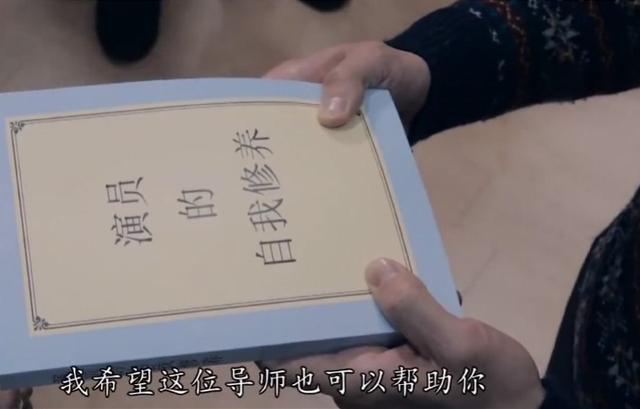 演员
的
自我修养
我希望这位导师也可以帮助你